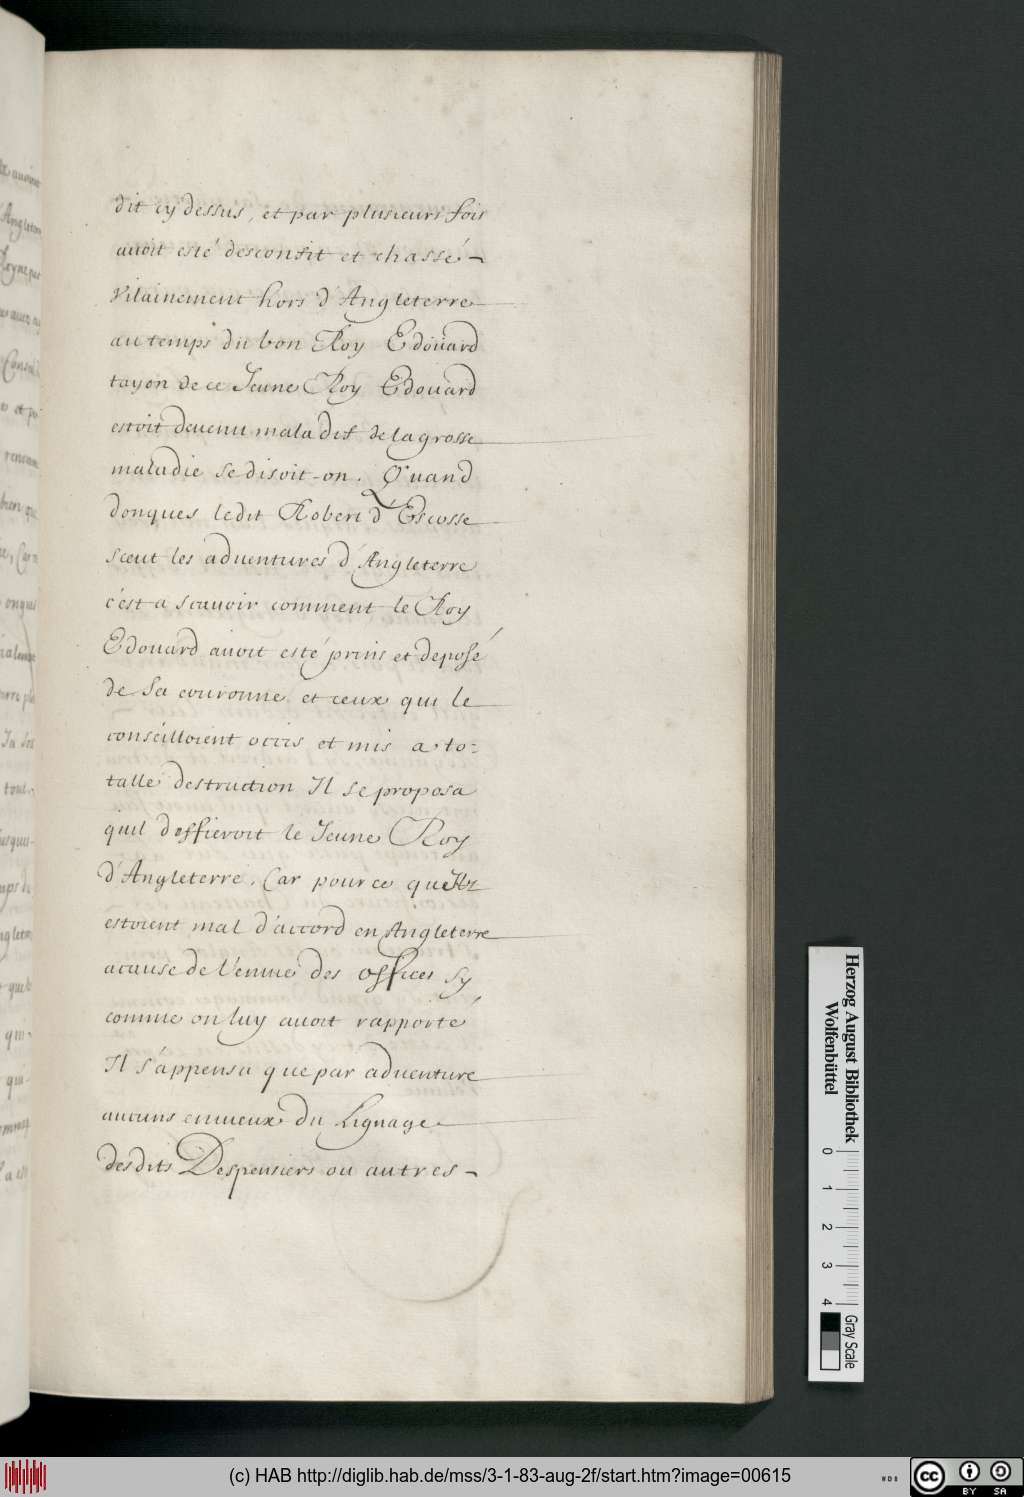 dit cy dessus, et par plusieurs fois
auoit esté desconfit et chassé -
vilainement hors d'Angleterre
au temps du bon Roy Edoüard
tayon de ce Jeune Roy Edoüard
estoit deuenu malades de la grosse
maladie se disoit-on. Quand
donques ledit Robert d'Escosse
sceut les aduentures d'Angleterre
c'est a scauoir comment le Roy
Edouard auoit esté prins et deposé
de sa couronne et ceux qui le
conseilloient occis et mis a to=
talle destruction Il se proposa
quil deffieroit le Jeune Roy
d'Angleterre. Car pource que Ilz
estoient mal d'accord en Angleterre
acause de l'enuie des offices sy
comme on luy auoit rapporté
Il s'appensa que par aduenture
aucuns enuieux du Lignage
desdits Despensiers ou autres -
Herzog August Bibliothek
Wolfenbüttel
0 1 2 3 4
Gray Scale
(c) HAB http://diglib.hab.de/mss/3-1-83-aug-2f/start.htm?image=00615
WDB
cc BY SA